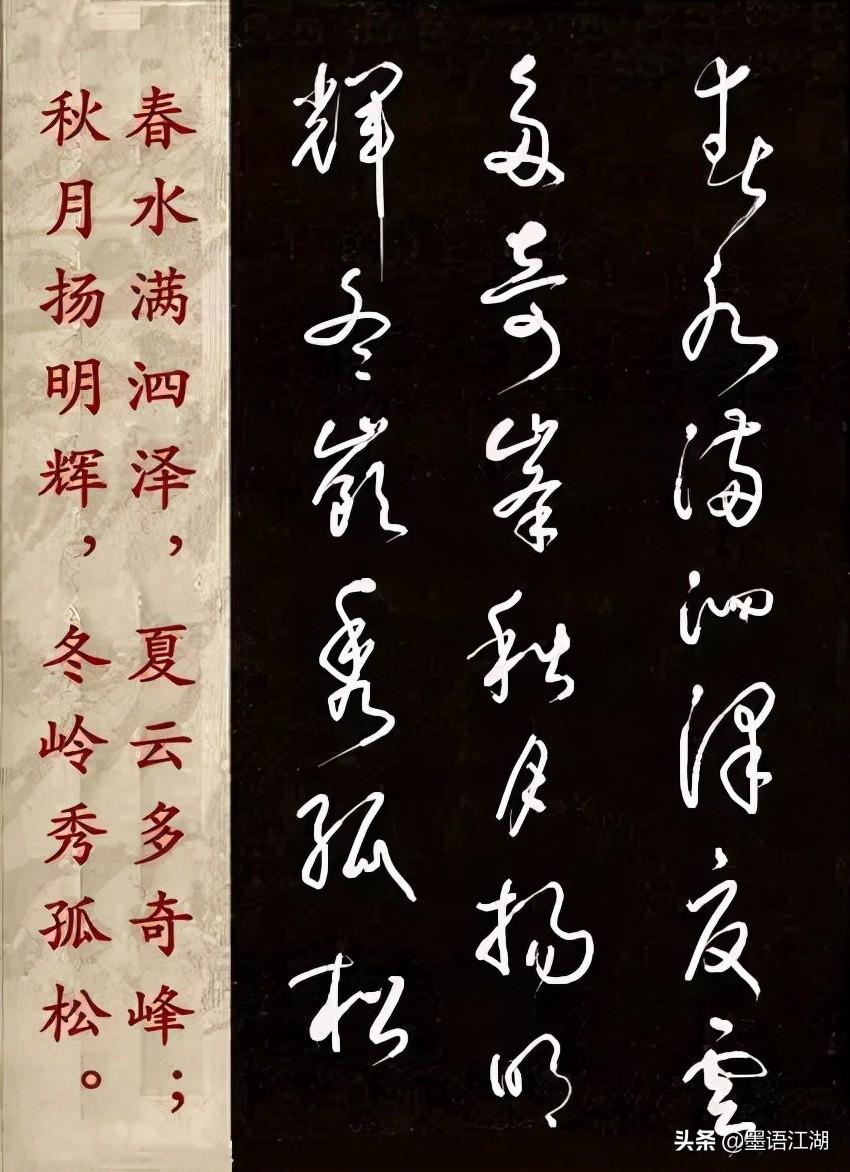 春水滿泗澤夏雲
多奇峯秋月揚明
輝冬嶺秀孤松
春水满泗泽，夏云多奇峰；
秋月扬明辉，冬岭秀孤松。
头条 @墨语江湖